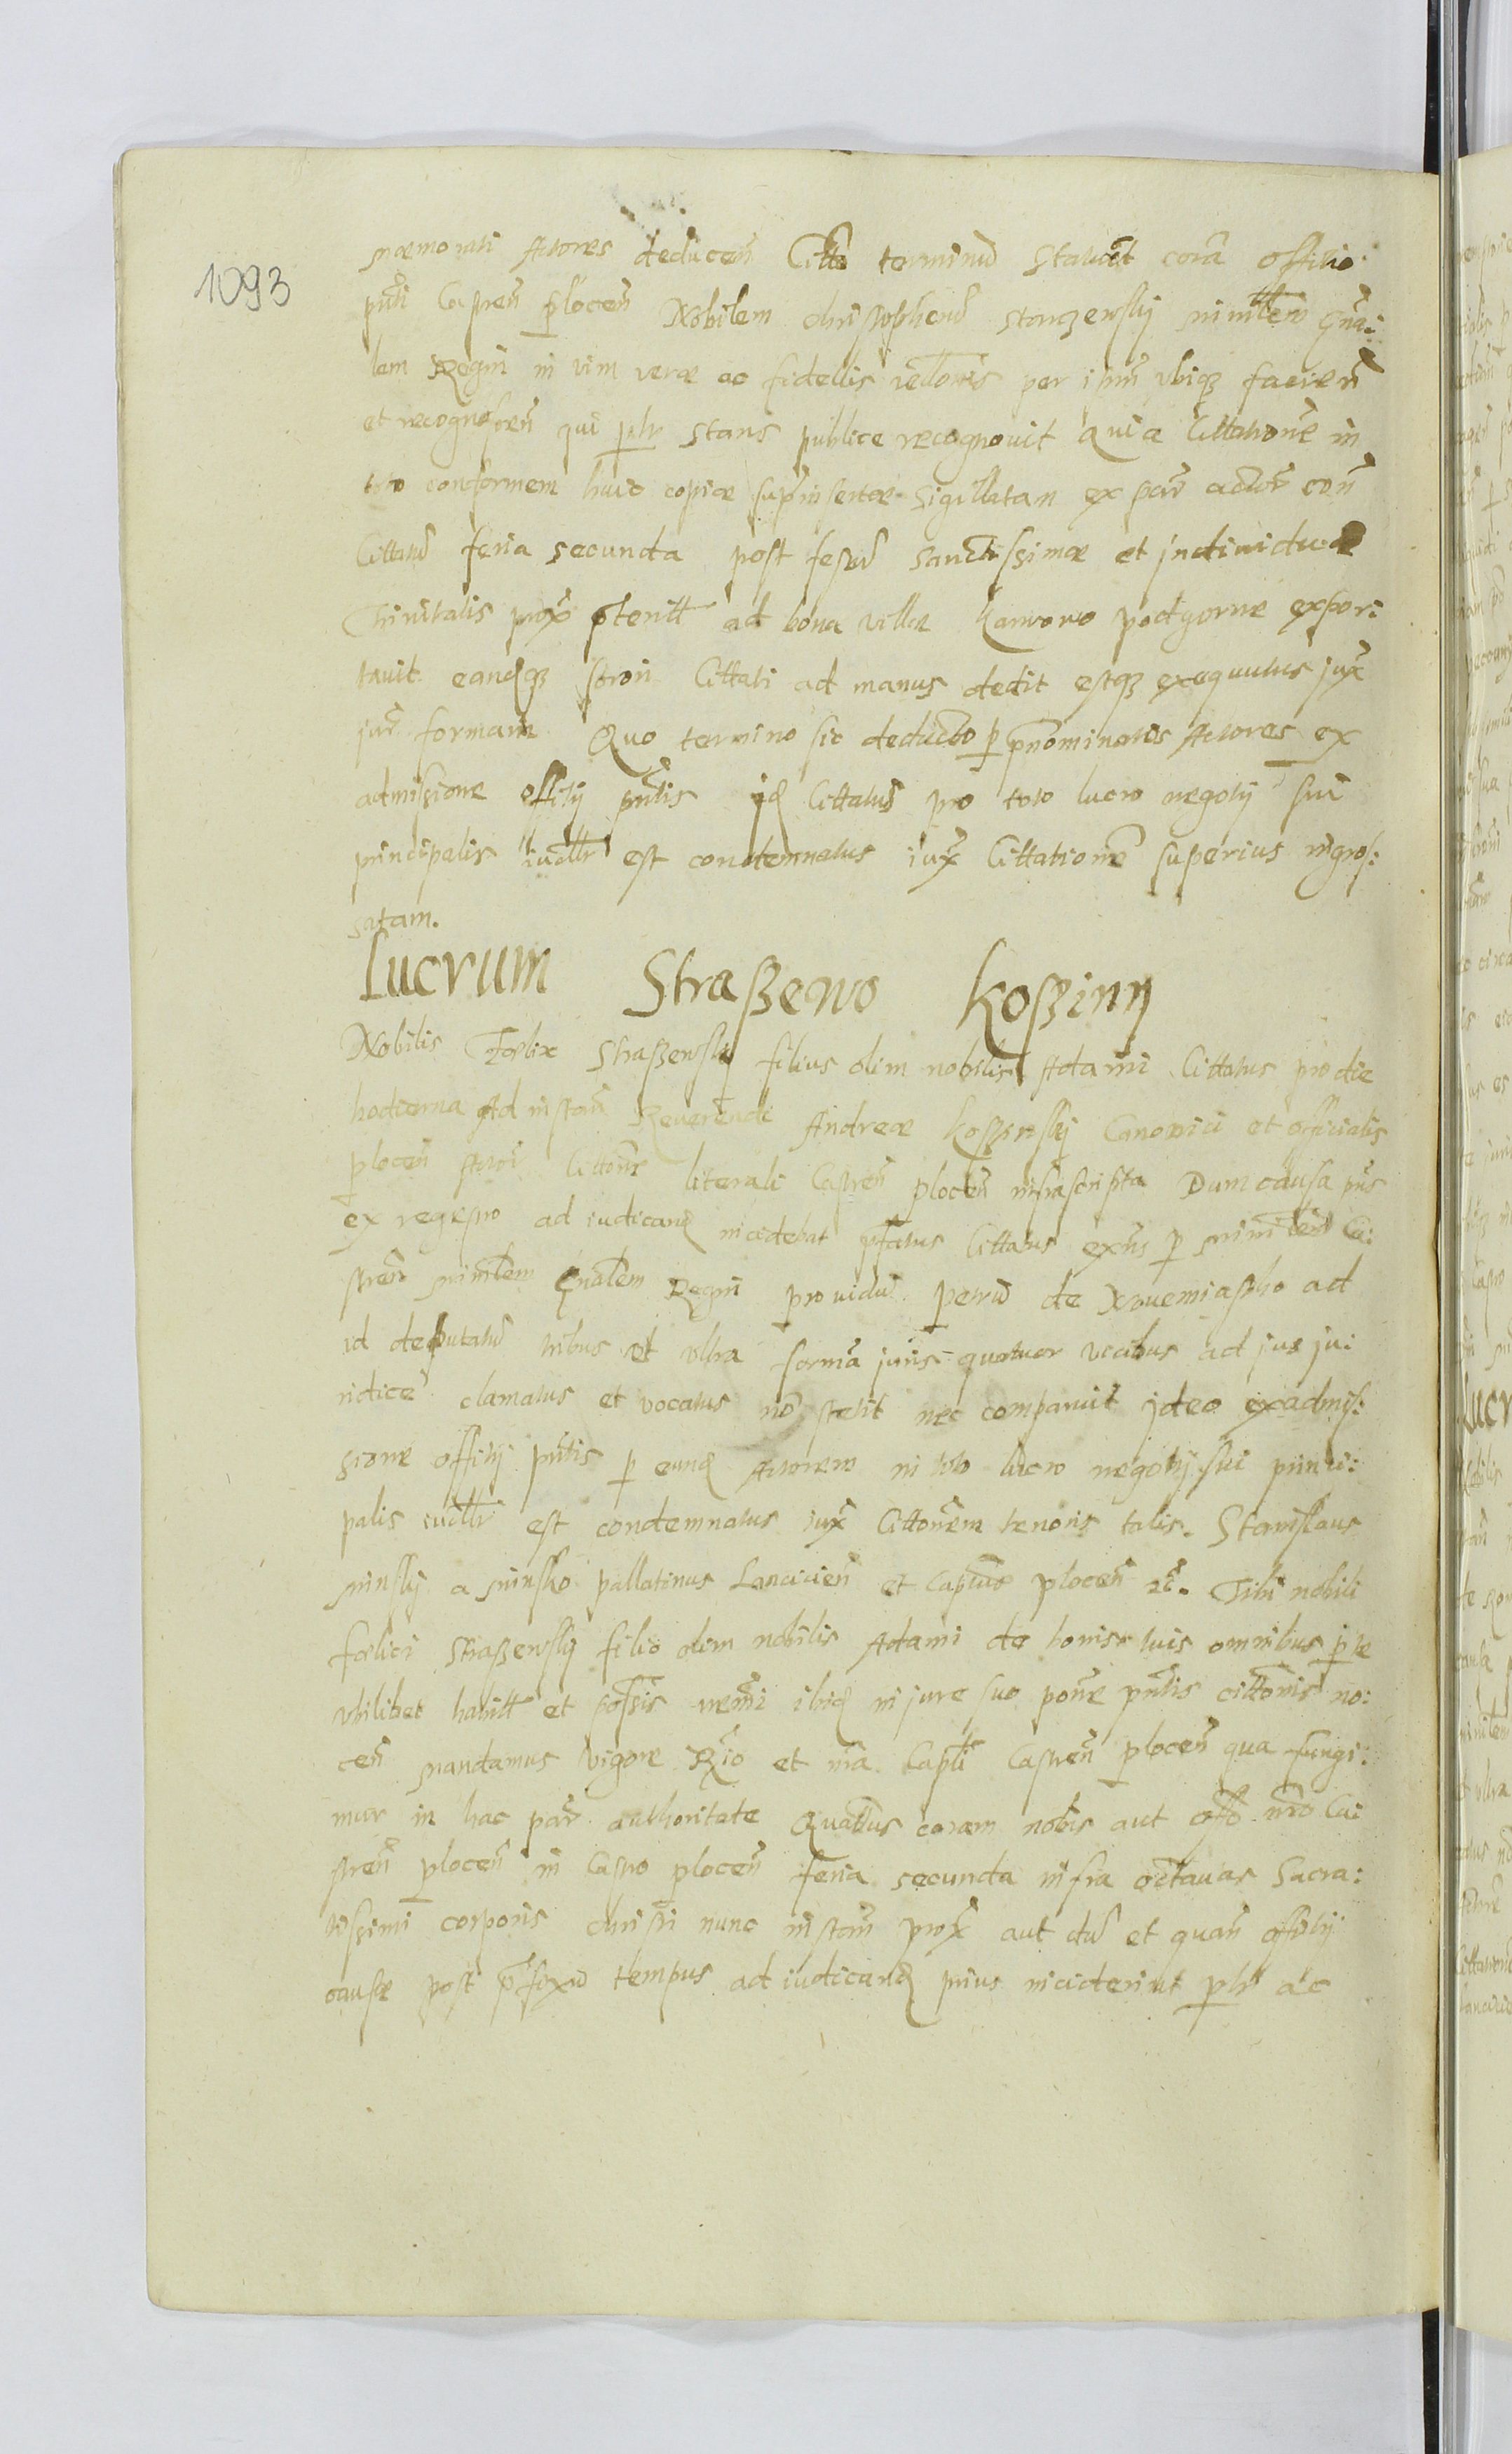 1093
memorati Actores deducen Citto terminu Statuest cora offitio
pnti Castren plocen Nobilem christopheru Starzewskÿ minrlem gna:
lem Regni in vim veræ ac fidellis relonis per ipm vbiqz facien
et recognoscen qui pslr stans publice recognouit Quia Cittatione in
toto conformem huic copiæ suprinsertæ Sigillatam ex par actor con
Cittatu feria secunda post festu sanctissimæ et indiuiduæ
Trinitatis prox pterit ad bona villæ Karwowo podgorne expor:
tauit eandqz Citati ad manus dedit estqz exequutus jux
jur formam Quo termino sic deducto p pnominatos Actores ex
admissione offitÿ pntis id Cittatus pro toto lucro negotÿ sui
principalis iudllr est condemnatus iux Cittatione superius ingros:
satam.
Lucrum Straßewo Koßinn
Nobilis Fœlix Straßewskÿ filius olim nobilis Adami Cittatus pro die
hodierna Ad instan Reuerendi Andreæ Koßinskÿ Canonici et officialis
plocen Actor Cittone literali Castren plocen infrascripta Dum causa pns
ex regestro ad iudicand incidebat pfatus Cittatus exns p minrlem Ca:
stren minrlem Gnalem Regni prouidu petru de ad
id deputatu tribus et vltra forma juris quatuor vicibus ad jus ju:
ridice clamatus et vocatus no stetit nec comparuit jdeo ex admis:
sione offitÿ pntis p eund Actorem in toto lucro negotÿ sui princi:
palis iudllr est condemnatus iux Cittonem tenoris talis. Stanislaus
minskÿ a minsko pallatinus Lancicien et Capneus plocen zc. Tibi nobili
fœlici Straßewskÿ filio olim nobilis Adami de bonis tuis omnibus p te
vbilibet habitt et possis ibid in jure suo pone pntis cittonis no:
cen mandamus vigore Rgio et nra Captli Castren plocen qua fungi:
mur in hac par authoritate Quattus coram nobis aut offo nro Ca:
stren plocen in Castro plocen feria secunda infra octauas Sacra:
tissimi corporis christi nunc instan prox aut du et quan offitÿ
causæ post pfixu tempus ad iudicand prius inciderint pslr ac